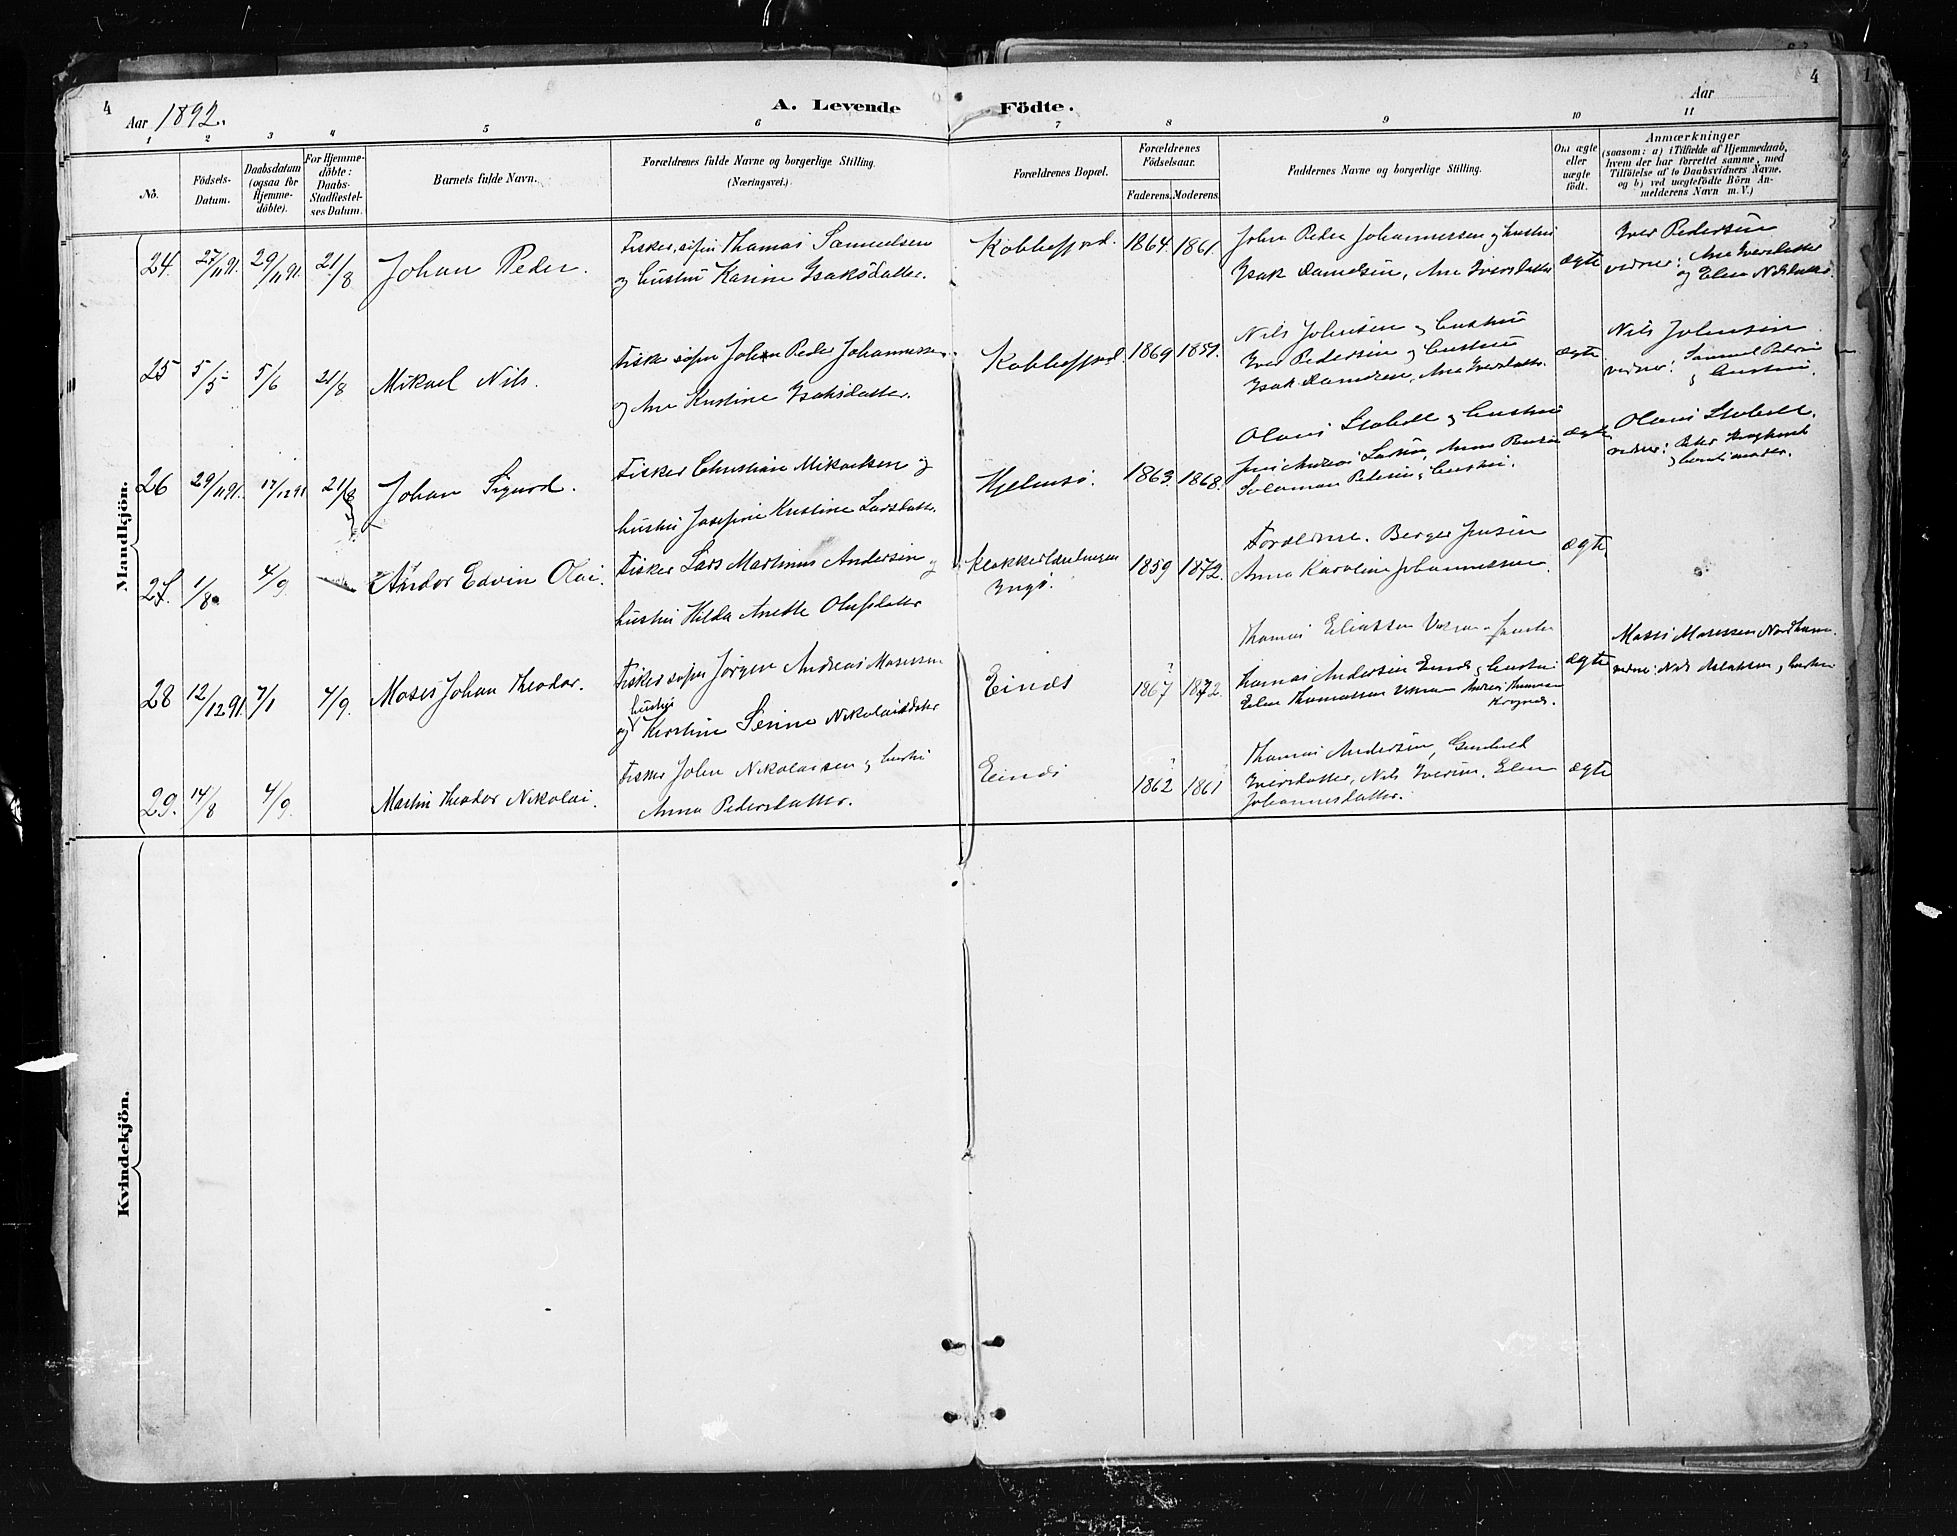 4
Aar 1892.
A. Levende Födte.
Aar
4
1
2
3
4
5
6
7
8
9
10
11
No.
Födsels-Datum.
Daabsdatum (ogsaa for Hjemme-döbte).
For Hjemme-döbte: Daabs-Stadfæstel-ses Datum.
Barnets fulde Navn.
Forældrenes fulde Navne og borgerlige Stilling.
(Næringsvei.)
Forældrenes Bopæl.
Forældrenes Födselsaar.
Faderens.
Moderens.
Faddernes Navne og borgerlige Stilling.
Om ægte eller uægte födt.
Anmærkninger
(saasom: a) i Tilfælde af Hjemmedaab,
hvem der har forrettet samme, med
Tilföielse af to Daabsvidners Navne,
og b) ved uægtefödte Börn An-
melderens Navn m. V.)
Mandkjön.
24. 27/11 91. 29/11 91. 21/8 Johan Peder.
Fisker, søfin Thomas Samuelsen
og hustru Karine Isaksdatter.
Kobbefjord. 1864. 1861.
John Peder Johannessen og hustru
Isak Danielsen, Ane Iversdatter
ægte
Iver Pedersen
vidner: Ane Iversdatter
og Elen Nilsdatter.
25 5/5 5/6 21/8 Mikael Nils.
Fisker søfin Johan Peder Johannessen
og Ane Kristine Isaksdatter.
Kobbefjord. 1869 1851.
Nils Johnsen og hustru
Iver Pedersen og hustru
Isak Danielsen, Ane Iversdatter.
ægte
Nils Johnsen
vidner: Samuel
og hustru.
26 29/11 91. 17/12 91 21/8 Johan Sigurd.
Fisker Christian Mikaelsen og
hustru Josefine Kristine Larsdatter.
Hjelmsö. 1863. 1868.
Olaus og hustru
Jens Andreas Larsen, Anna
Solomon Pedersen og hustru.
ægte
Olaus
vidner: Peder
27. 1/8. 4/9 Andor Edvin Olai.
Fisker Lars Martinus Andersen og
hustru Hilda Anette Olufsdatter
Ingö. 1859 1872.
Forældrene. Berger Jensen
Anna Karoline Johannessen.
ægte
28 12/12 91. 7/1 4/9. Moses Johan Theodor.
Fisker søfin Jørgen Andreas Mosessen
og hustru Kirstine Serine Nikolaisdatter
Einds 1867 1872.
Thomas Eliassen
Thomas Andersen Einds og hustru
Elen Thomassen Andreas
ægte
Moses Mosessen
vidner: Nils og hustru
29. 14/8 4/9. Martin Theodor Nikolai.
Fisker John Nikolaisen og hustru
Anna Pedersdatter.
Einds 1862 1861
Thomas Andersen,
Iversdatter, Nils Iversen. Elen
Johannesdatter.
ægte
Kvindekjön.